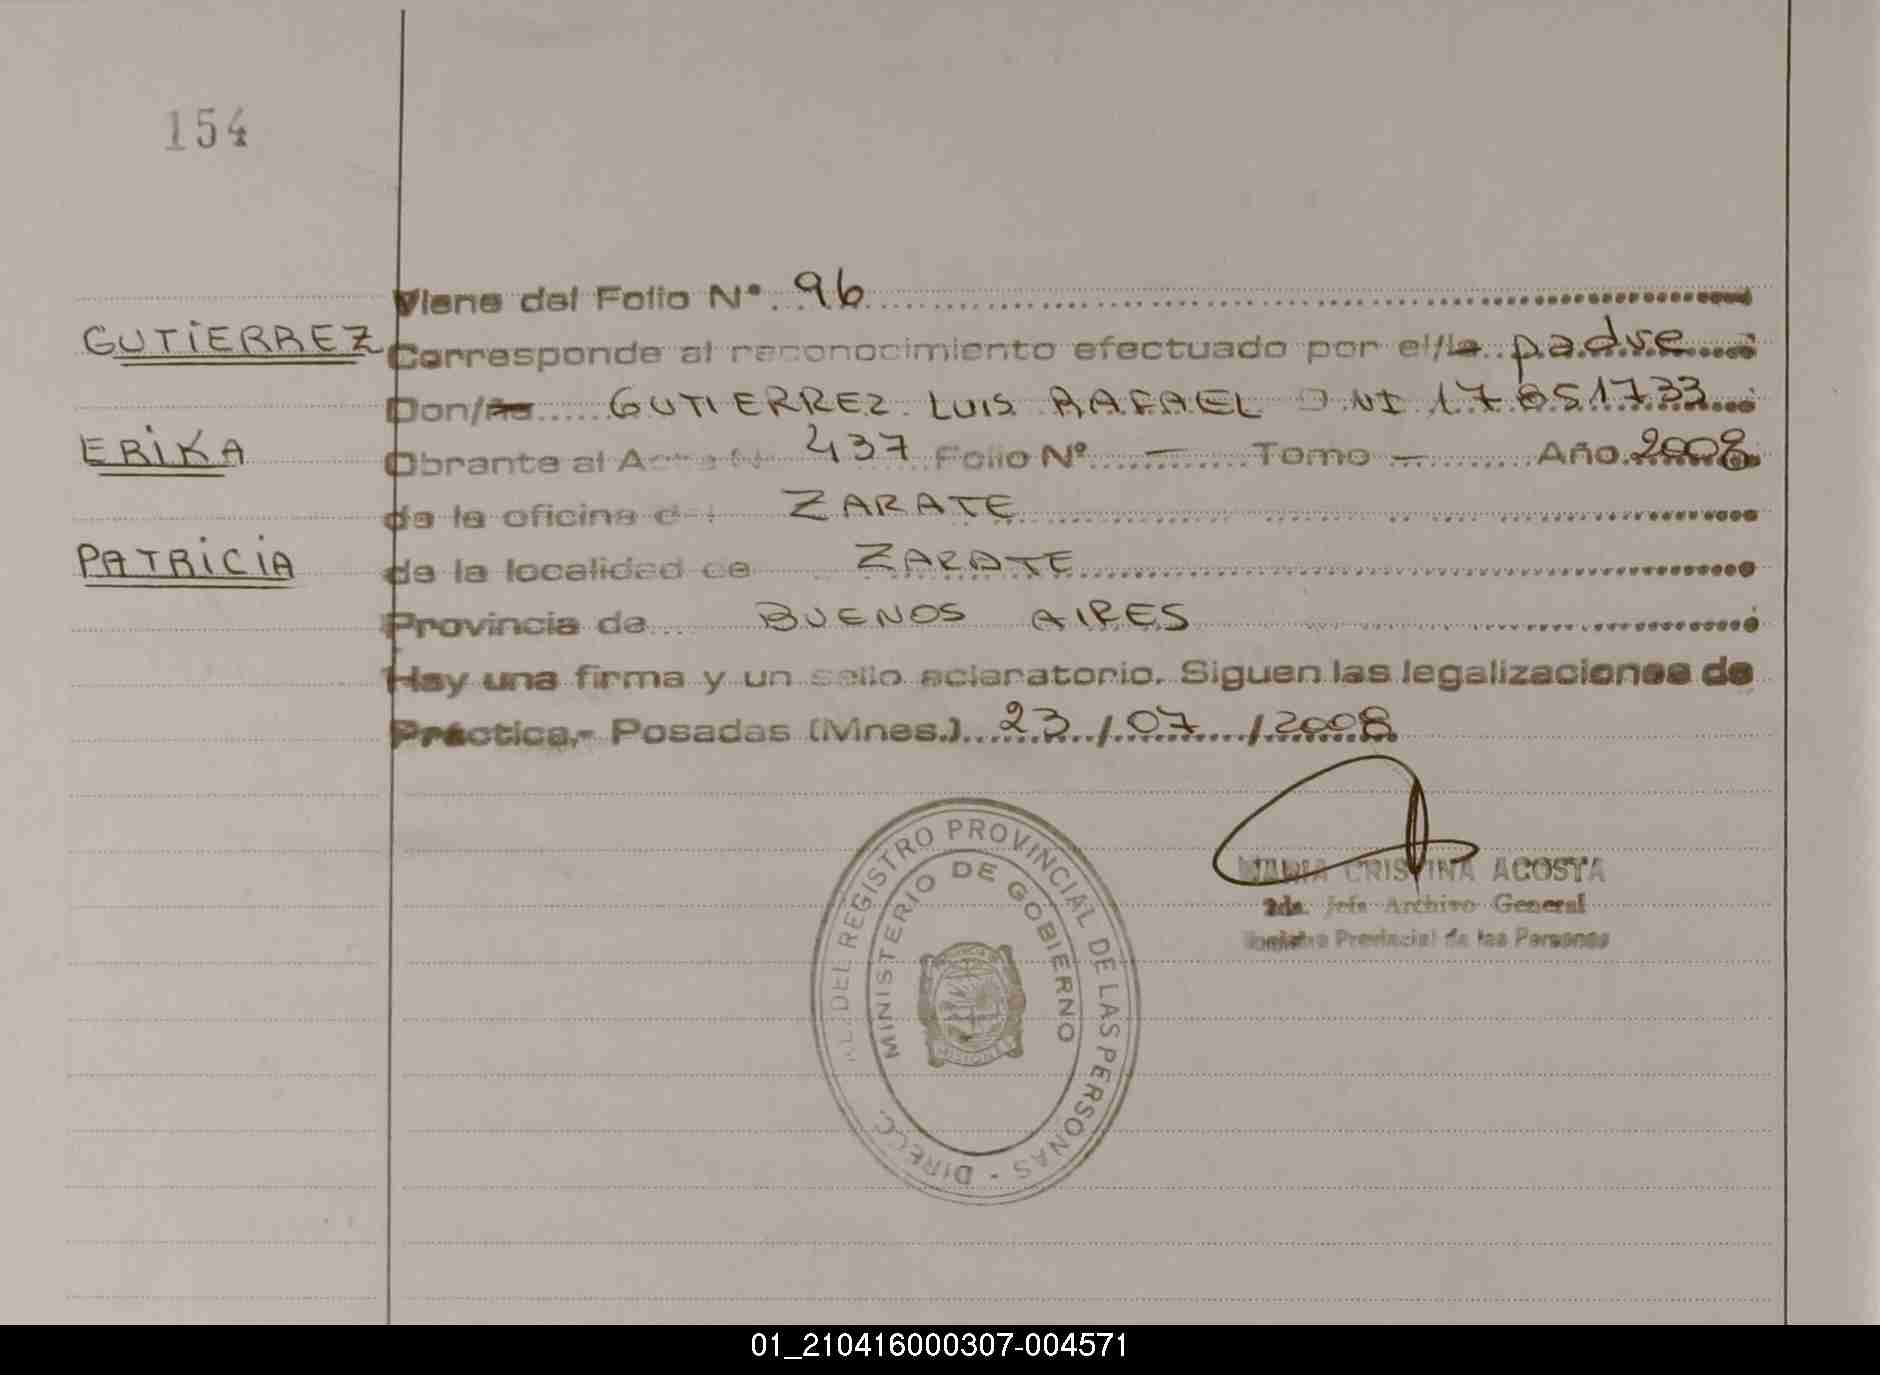 154
Viene del Folio Nº 96
GUTIERREZ
Corresponde al reconocimiento efectuado por el/la padre
Don/ña GUTIERREZ LUIS RAFAEL DNI 17.851733
ERIKA
Obrante al Acta Nº 437 Folio Nº — Tomo — Año 2008
de la oficina del ZARATE
PATRICIA
de la localidad de ZARATE
Provincia de BUENOS AIRES
Hay una firma y un sello aclaratorio. Siguen las legalizaciones de
Práctica.- Posadas (Mnes.) 23/07/2008
MARIA CRISTINA ACOSTA
2da. Jefa Archivo General
Registro Provincial de las Personas
DIRECC. DEL REGISTRO PROVINCIAL DE LAS PERSONAS -
MINISTERIO DE GOBIERNO
MISIONES
01_210416000307-004571